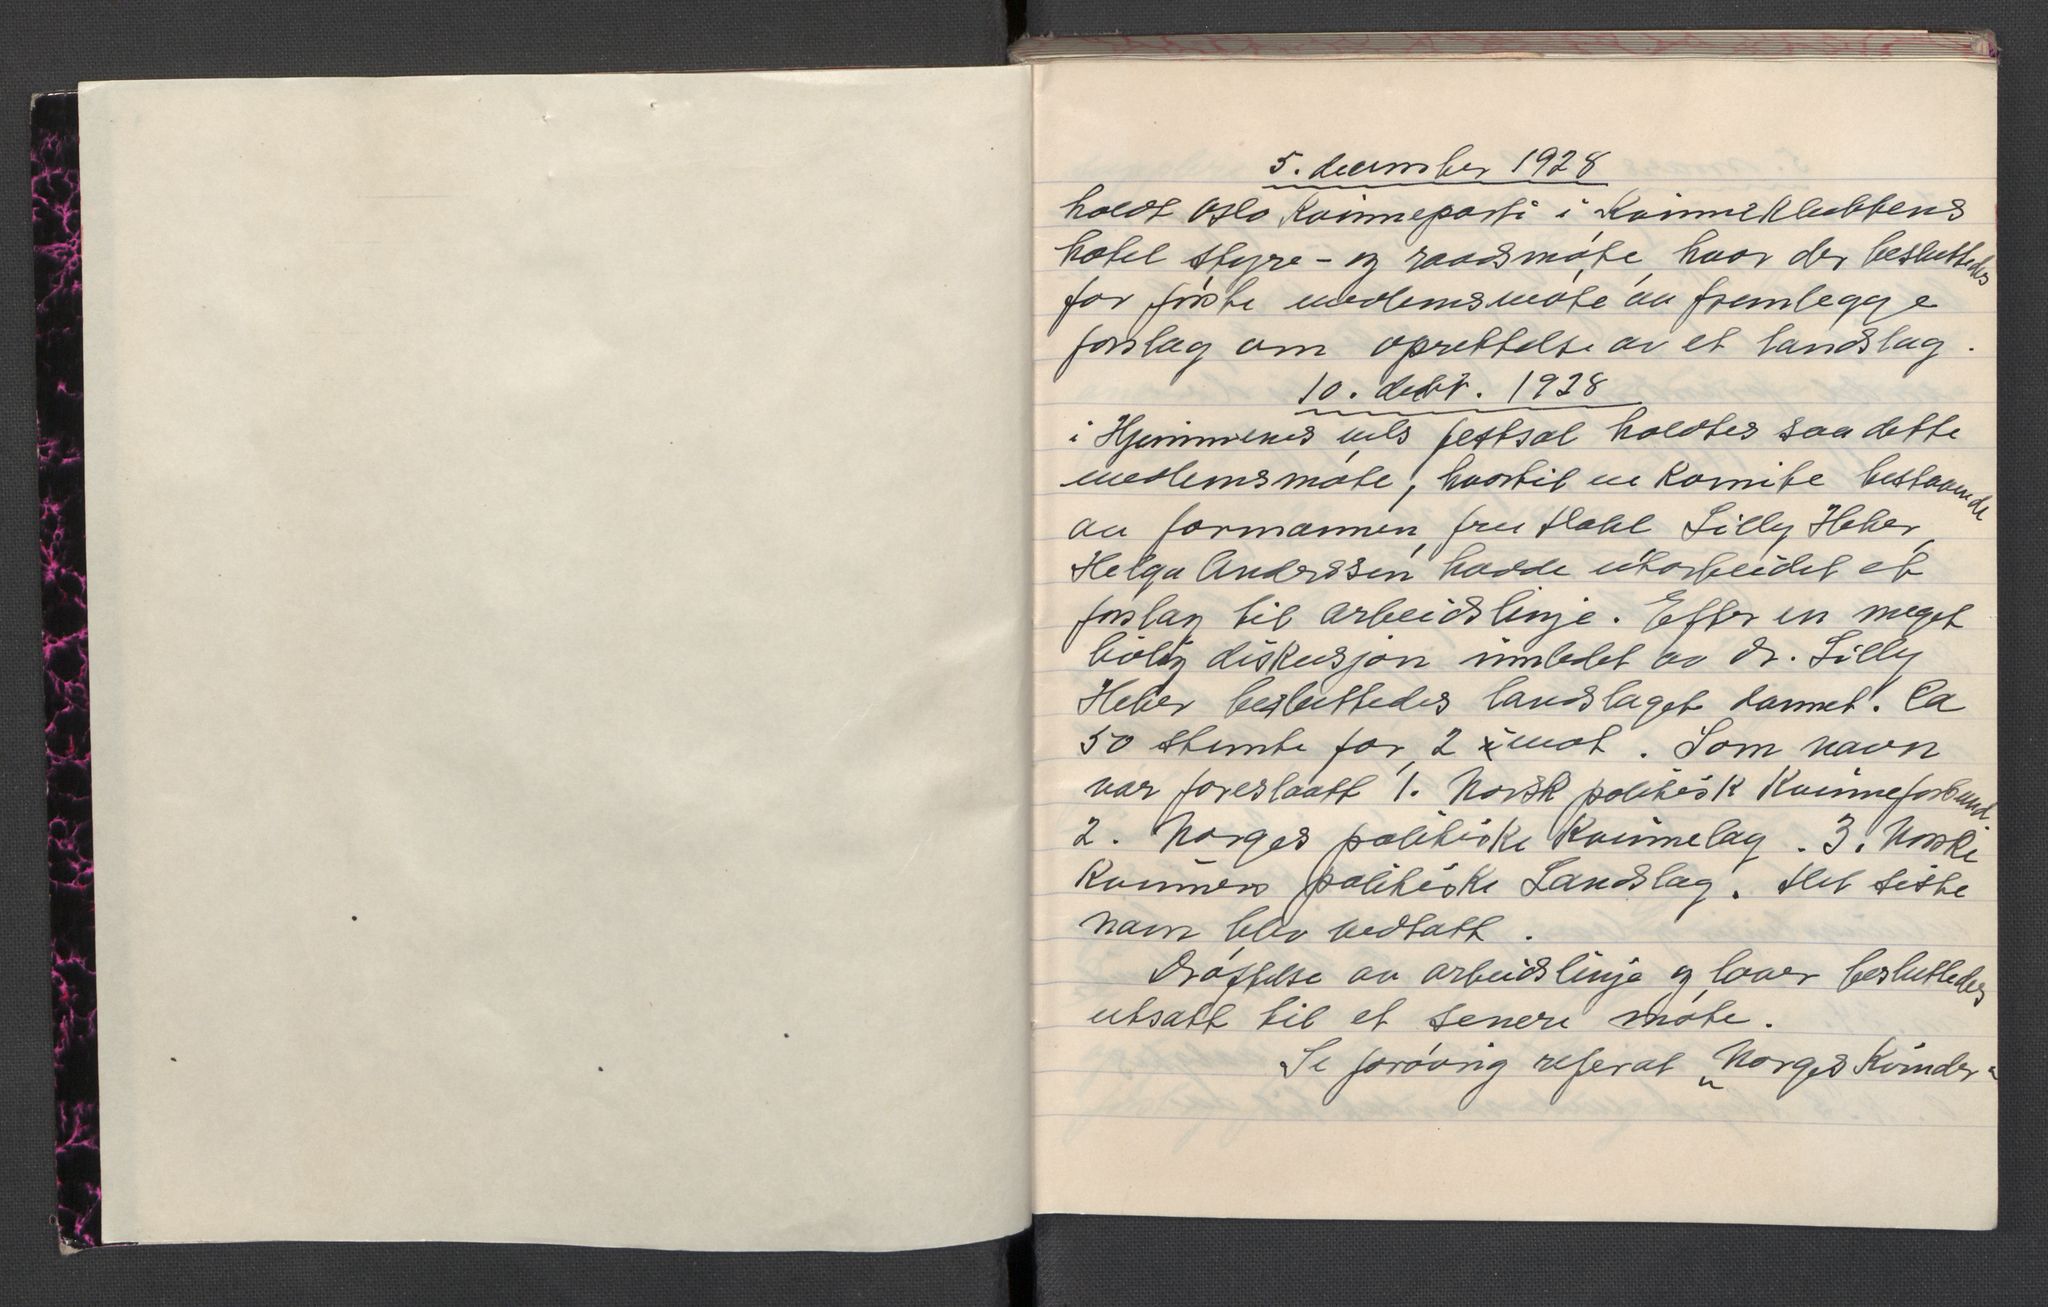 5. december 1928
holdt Oslo Kvinneparti i Kvinneklubbens
hotel styre- og raadsmøte hvor der besluttedes
for første medlemsmøte aa fremlegge
forslag om oprettelse av et landslag.
10. debr. 1928
i Hjemmenes vels festsal holdtes saa dette
medlemsmøte, hvortil en Komite bestaaende
av formannen, fru Dahl Lilly Heber,
Helga Anderssen hadde utarbeidet et
forslag til arbeidslinje. Efter en meget
livlig diskusjon innledet av Dr. Lilly
Heber besluttedes landslaget dannet. Ca
50 stemte for, 2 imot. Som navn
var foreslaatt 1. Norsk politisk Kvinneforbund
2. Norges politiske Kvinnelag. 3. Norske
Kvinners politiske Landslag. Det siste
navn blev vedtatt.
Drøftelse av arbeidslinje og lover besluttedes
utsatt til et senere møte.
Se forøvrig referat „Norges Kvinder“